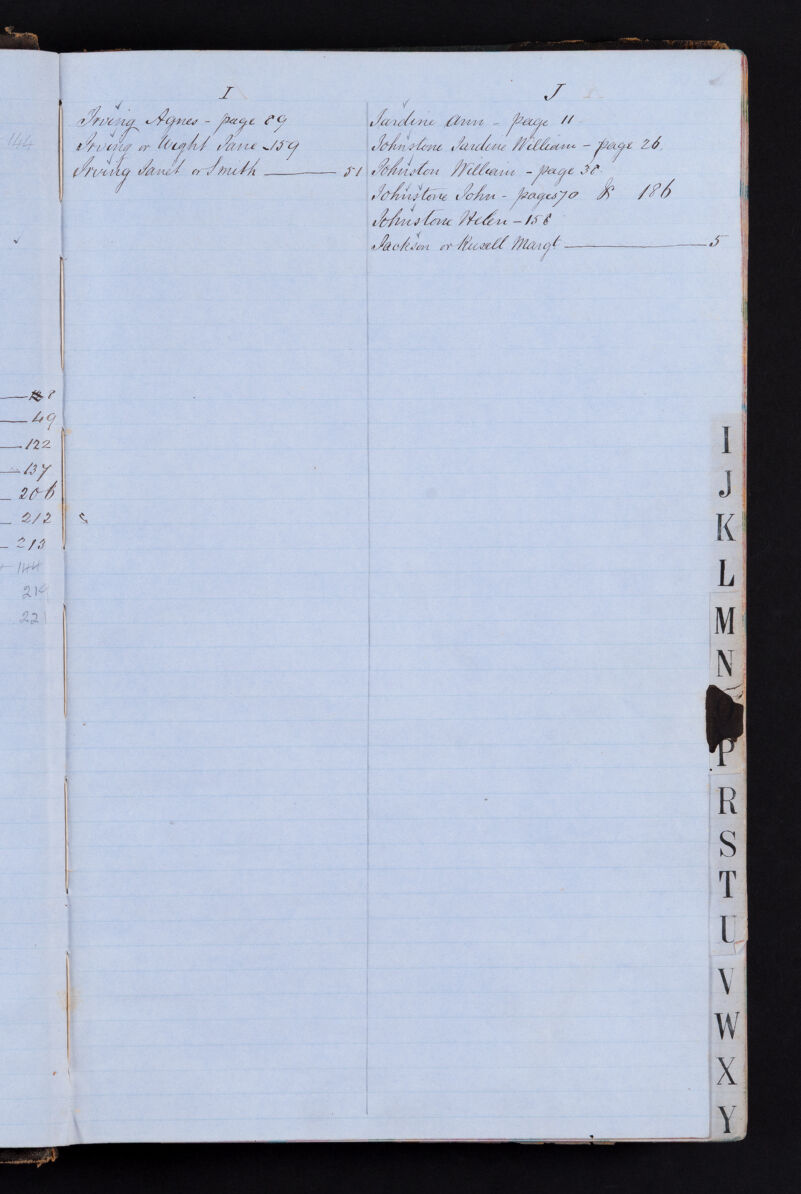 144
128
49
122
137
206
212
213
144
219
221
I
Irving Agnes - page 89
Irving or Wight Jane - 159
Irving Janet or Smith 51
J
Jardine Ann - page 11
Johnstone Jardine William - page 26
Johnston William - page 38
Johnstone John - pages 70 & 186
Johnstone Helen - 158
Jackson or Russell Margt 5
I
J
K
L
M
N
P
R
S
T
U
V
W
X
Y